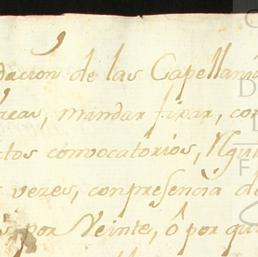 dacion de las Capellanias
reas, mandar fixar, con
ctos convocatorios, Ngui
s vezes, conpresencia de
s por Veinte, ô por qui